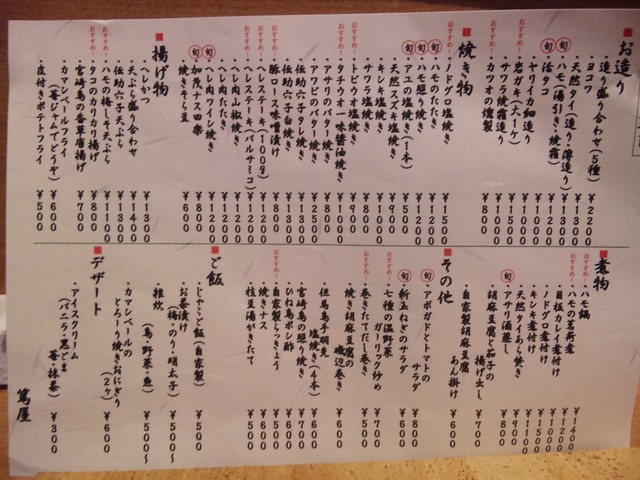 ■お造り
・造り盛り合わせ(5種) ¥2200
・ヨコワ ¥1300
・天然タイ(造り・薄造り) ¥1300
旬・ハモ(湯引き・焼霜) ¥1200
旬・活タコ ¥1000
・ヤリイカ細造り ¥1000
おすすめ!・岩ガキ(大1ケ) ¥1500
・サワラ焼霜造り ¥1000
おすすめ!・カツオの燻製 ¥800
■焼き物
おすすめ!・ノドグロ塩焼き ¥1500
旬・ハモのたたき ¥1200
旬・ハモ照り焼き ¥1200
旬・アユの塩焼き(1本) ¥500
・天然スズキ塩焼き ¥900
・キンキ塩焼き
・サワラ塩焼き ¥900
おすすめ!・トビウオ塩焼き ¥900
・タチウオ一味醤油焼き ¥1000
・アサリのバター焼き ¥800
・アワビのバター焼き ¥2500
・伝助穴子タレ焼き ¥1300
・伝助穴子白焼き ¥1300
おすすめ!・豚ロース味噌漬け ¥800
・ヘレステーキ(100g) ¥1200
おすすめ!・ヘレステーキ(バルサミコ) ¥1200
・ヘレ肉山椒焼き ¥1200
・ヘレ肉たたき ¥1200
旬・ヘレ肉 焼き ¥1200
旬・加茂ナス田楽 ¥800
・焼きそら豆 ¥600
■揚げ物
・ヘレかつ ¥1300
・天ぷら盛り合わせ ¥1400
・伝助穴子天ぷら ¥1300
おすすめ!・ハモの梅しそ天ぷら ¥1100
おすすめ!・タコのカリカリ揚げ ¥800
・宮崎鳥の香草唐揚げ ¥700
・カマンベールフライ
(苺ジャムでどうぞ) ¥600
・皮付きポテトフライ ¥500
■煮物
おすすめ!・ハモ鍋 ¥1400
おすすめ!・ハモの茗荷煮 ¥1200
・目板カレイ煮付け
・ノドグロ煮付け ¥1500
・キンキ煮付け
・天然タイあら炊き ¥1100
旬・アサリ酒蒸し ¥900
・胡麻豆腐と茄子の
揚げ出し ¥700
・自家製胡麻豆腐
あん掛け ¥600
■その他
旬・アボガドとトマトの
サラダ ¥800
旬・新玉ねぎのサラダ ¥600
・七種の温野菜
ガーリック炒め ¥700
おすすめ!・巻きたてだし巻き ¥500
・焼き胡麻豆腐の
磯辺巻き ¥600
・但馬鳥手羽先
塩焼き(4本) ¥600
・宮崎鳥の照り焼き ¥700
・ひね鳥ポン酢 ¥600
おすすめ!・自家製らっきょう ¥500
・焼きナス ¥600
・枝豆湯がきたて ¥500
■ご飯
・じゃこご飯(自家製) ¥500
・お茶漬け
(梅・のり・明太子) ¥500〜
・雑炊
(鳥・野菜・魚) ¥500〜
・カマンベールの
とろーり焼きおにぎり
(2ヶ) ¥600
■デザート
・アイスクリーム
(バニラ・黒ごま
苺・抹茶) ¥300
篤屋